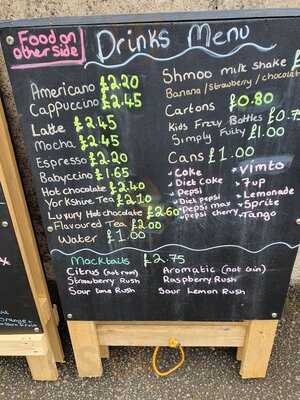 Food on
other side
Drinks Menu
Americano £2.20
Cappuccino £2.45
Latte £2.45
Mocha £2.45
Espresso £2.20
Babyccino £1.65
Hot chocolate £2.40
Yorkshire Tea £2.10
Luxury Hot chocolate £2.60
Flavoured Tea £2.00
Water £1.00
Shmoo milk shake
Banana / Strawberry / chocolate
Cartons £0.80
Kids Fruity Bottles £0.75
Simply Fruity £1.00
Cans £1.00
Coke
Diet Coke
Pepsi
Diet pepsi
Pepsi max
pepsi cherry
Vimto
7up
Lemonade
Sprite
Tango
Mocktails £2.75
Citrus (not rum)
Strawberry Rush
Sour Lime Rush
Aromatic (not Gin)
Raspberry Rush
Sour Lemon Rush